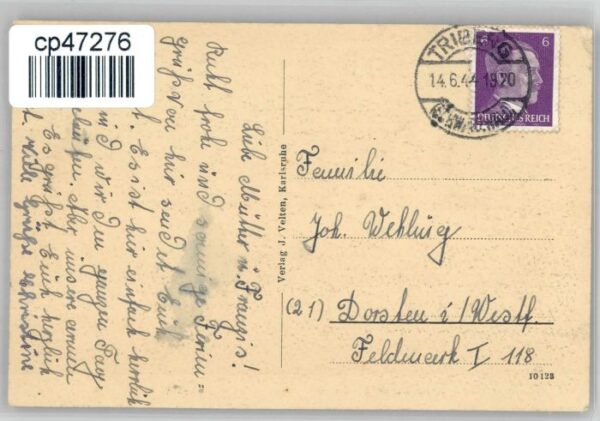 cp47276
TRIBERG
14.6.44 1920
6
DEUTSCHES REICH
Liebe Mutter u. Franzis!
Recht frohe und sonnige Ferien=
grüße von hier sendet Euch
Es ist hier einfach herrlich
sind wir den ganzen Tag
Aber unsere armen
Es grüßt Euch herzlich
viele Grüße Christine
Verlag J. Velten, Karlsruhe
Familie
Joh. Wehling
(21) Dorsten i/Westf.
Feldmark I 118
10 123